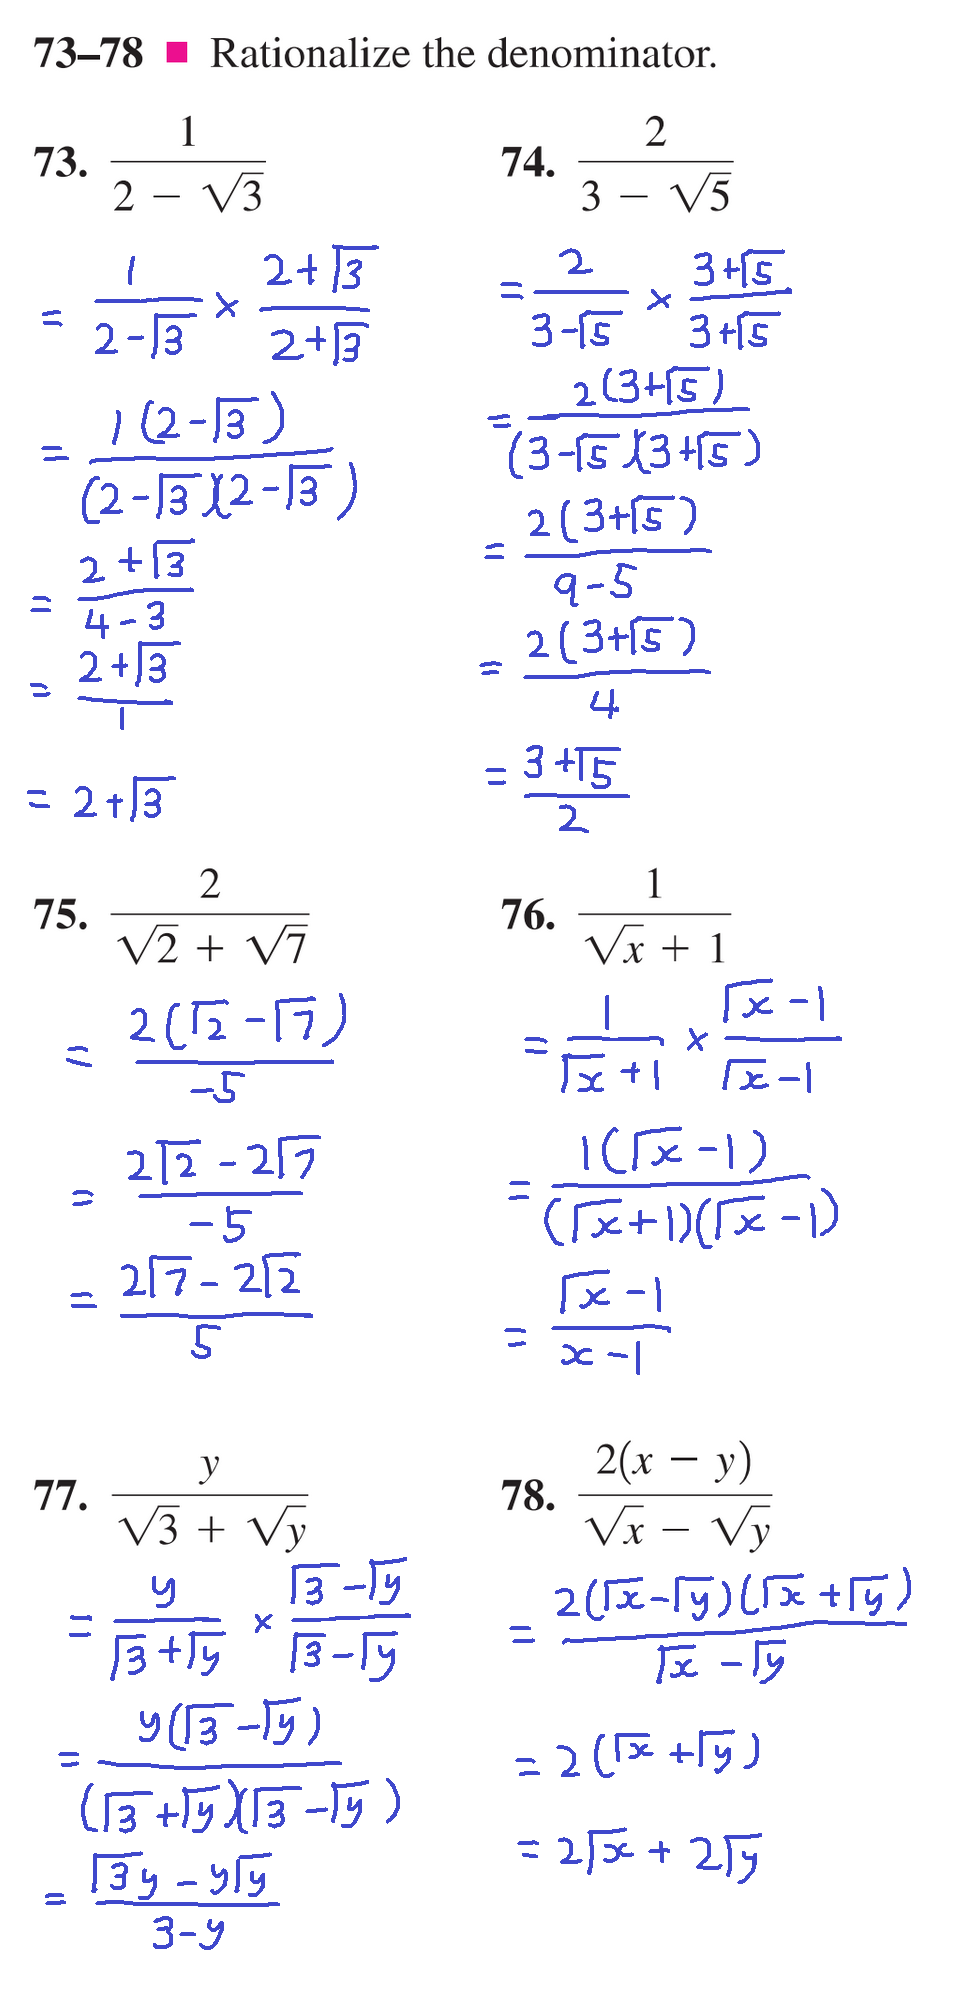 73–78 ■ Rationalize the denominator.
73. 1/(2 − √3)
= 1/(2-√3) × (2+√3)/(2+√3)
= 1(2-√3)/((2-√3)(2-√3))
= (2+√3)/(4-3)
= (2+√3)/1
= 2+√3
74. 2/(3 − √5)
= 2/(3-√5) × (3+√5)/(3+√5)
= 2(3+√5)/((3-√5)(3+√5))
= 2(3+√5)/(9-5)
= 2(3+√5)/4
= (3+√5)/2
75. 2/(√2 + √7)
= 2(√2-√7)/(-5)
= (2√2-2√7)/(-5)
= (2√7-2√2)/5
76. 1/(√x + 1)
= 1/(√x+1) × (√x-1)/(√x-1)
= 1(√x-1)/((√x+1)(√x-1))
= (√x-1)/(x-1)
77. y/(√3 + √y)
= y/(√3+√y) × (√3-√y)/(√3-√y)
= y(√3-√y)/((√3+√y)(√3-√y))
= (√3y-y√y)/(3-y)
78. 2(x − y)/(√x − √y)
= 2(√x-√y)(√x+√y)/(√x-√y)
= 2(√x+√y)
= 2√x + 2√y